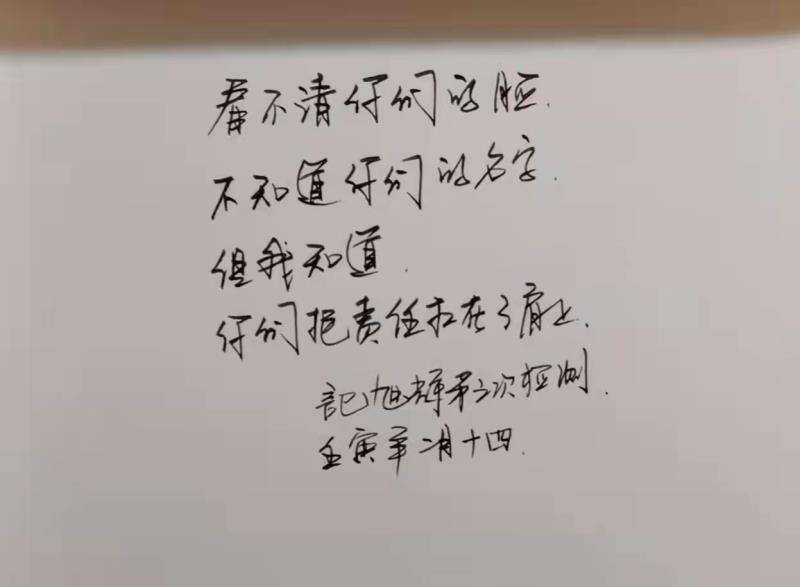 看不清你们的脸.
不知道你们的名字.
但我知道.
你们把责任扛在了肩上.
記旭辉第三次检测.
壬寅年二月十四.